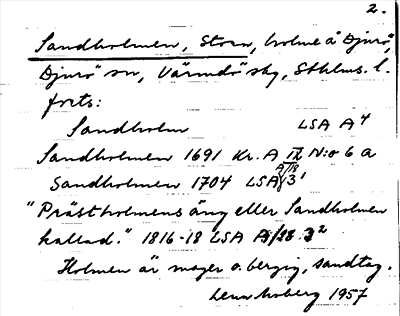 2.
Sandholmen, Stora, holme å Djurö,
Djurö sn, Värmdö skg, Sthlms. l.
forts:
Sandholm LSA A4
Sandholmen 1691 Kr. A IX N:o 6 a
Sandholmen 1704 LSA
"Prästholmens äng eller Sandholmen
kallad." 1816-18 LSA A/28 3²
Holmen är mager o. bergig, sandtag.
Lenn Moberg 1957